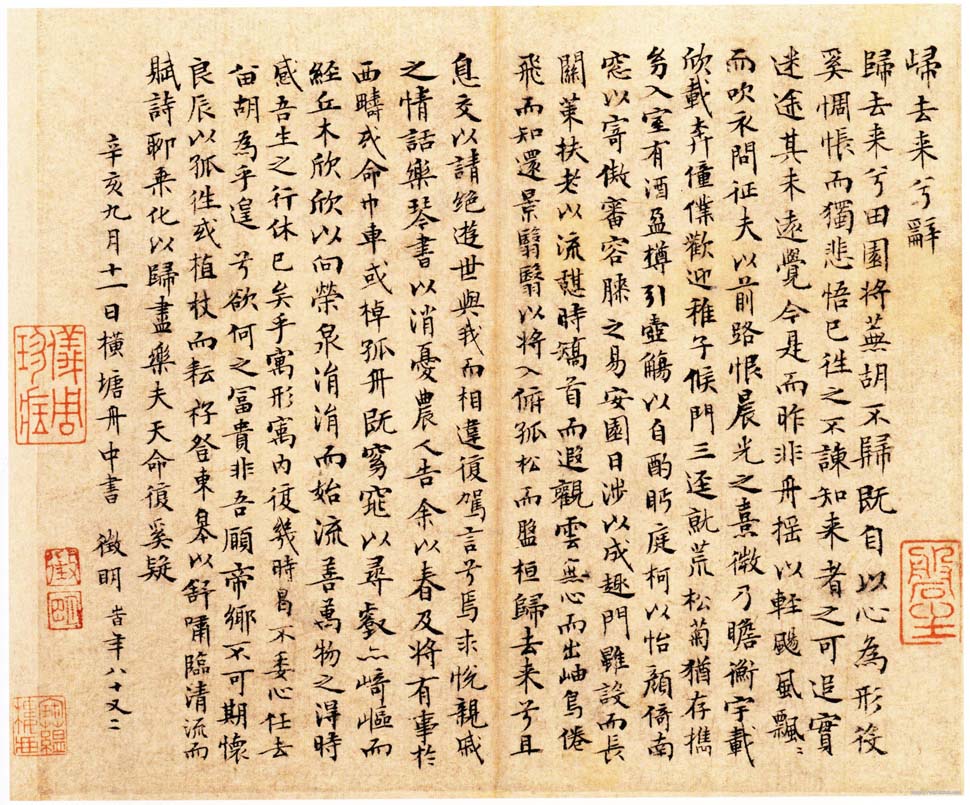 歸去来兮辭
歸去来兮田園将蕪胡不歸既自以心為形役
奚惆悵而獨悲悟已往之不諫知来者之可追實
迷途其未遠覺今是而昨非舟揺以軽颺風飄〻
而吹衣問征夫以前路恨晨光之熹微乃瞻衡宇載
欣載奔僮僕歡迎稚子候門三逕就荒松菊猶存擕
幼入室有酒盈樽引壺觴以自酌眄庭柯以怡顔倚南
窓以寄傲審容膝之易安園日涉以成趣門雖設而長
關策扶老以流憇時矯首而遐觀雲無心而出岫鳥倦
飛而知還景翳翳以将入俯孤松而盤桓歸去来兮且
息交以請絶遊世與我而相違復駕言兮焉求悅親戚
之情話樂琴書以消憂農人告余以春及将有事於
西疇或命巾車或棹孤舟既窈窕以尋壑亦崎嶇而
経丘木欣欣以向榮泉涓涓而始流善萬物之得時
感吾生之行休已矣乎寓形寓内復幾時曷不委心任去
留胡為乎遑〻兮欲何之冨貴非吾願帝郷不可期懷
良辰以孤往或植杖而耘籽登東皋以舒嘯臨清流而
賦詩聊乗化以歸盡樂夫天命復奚疑
辛亥九月十一日横塘舟中書 徵明 旹年八十又二
儀周珍藏
徵明